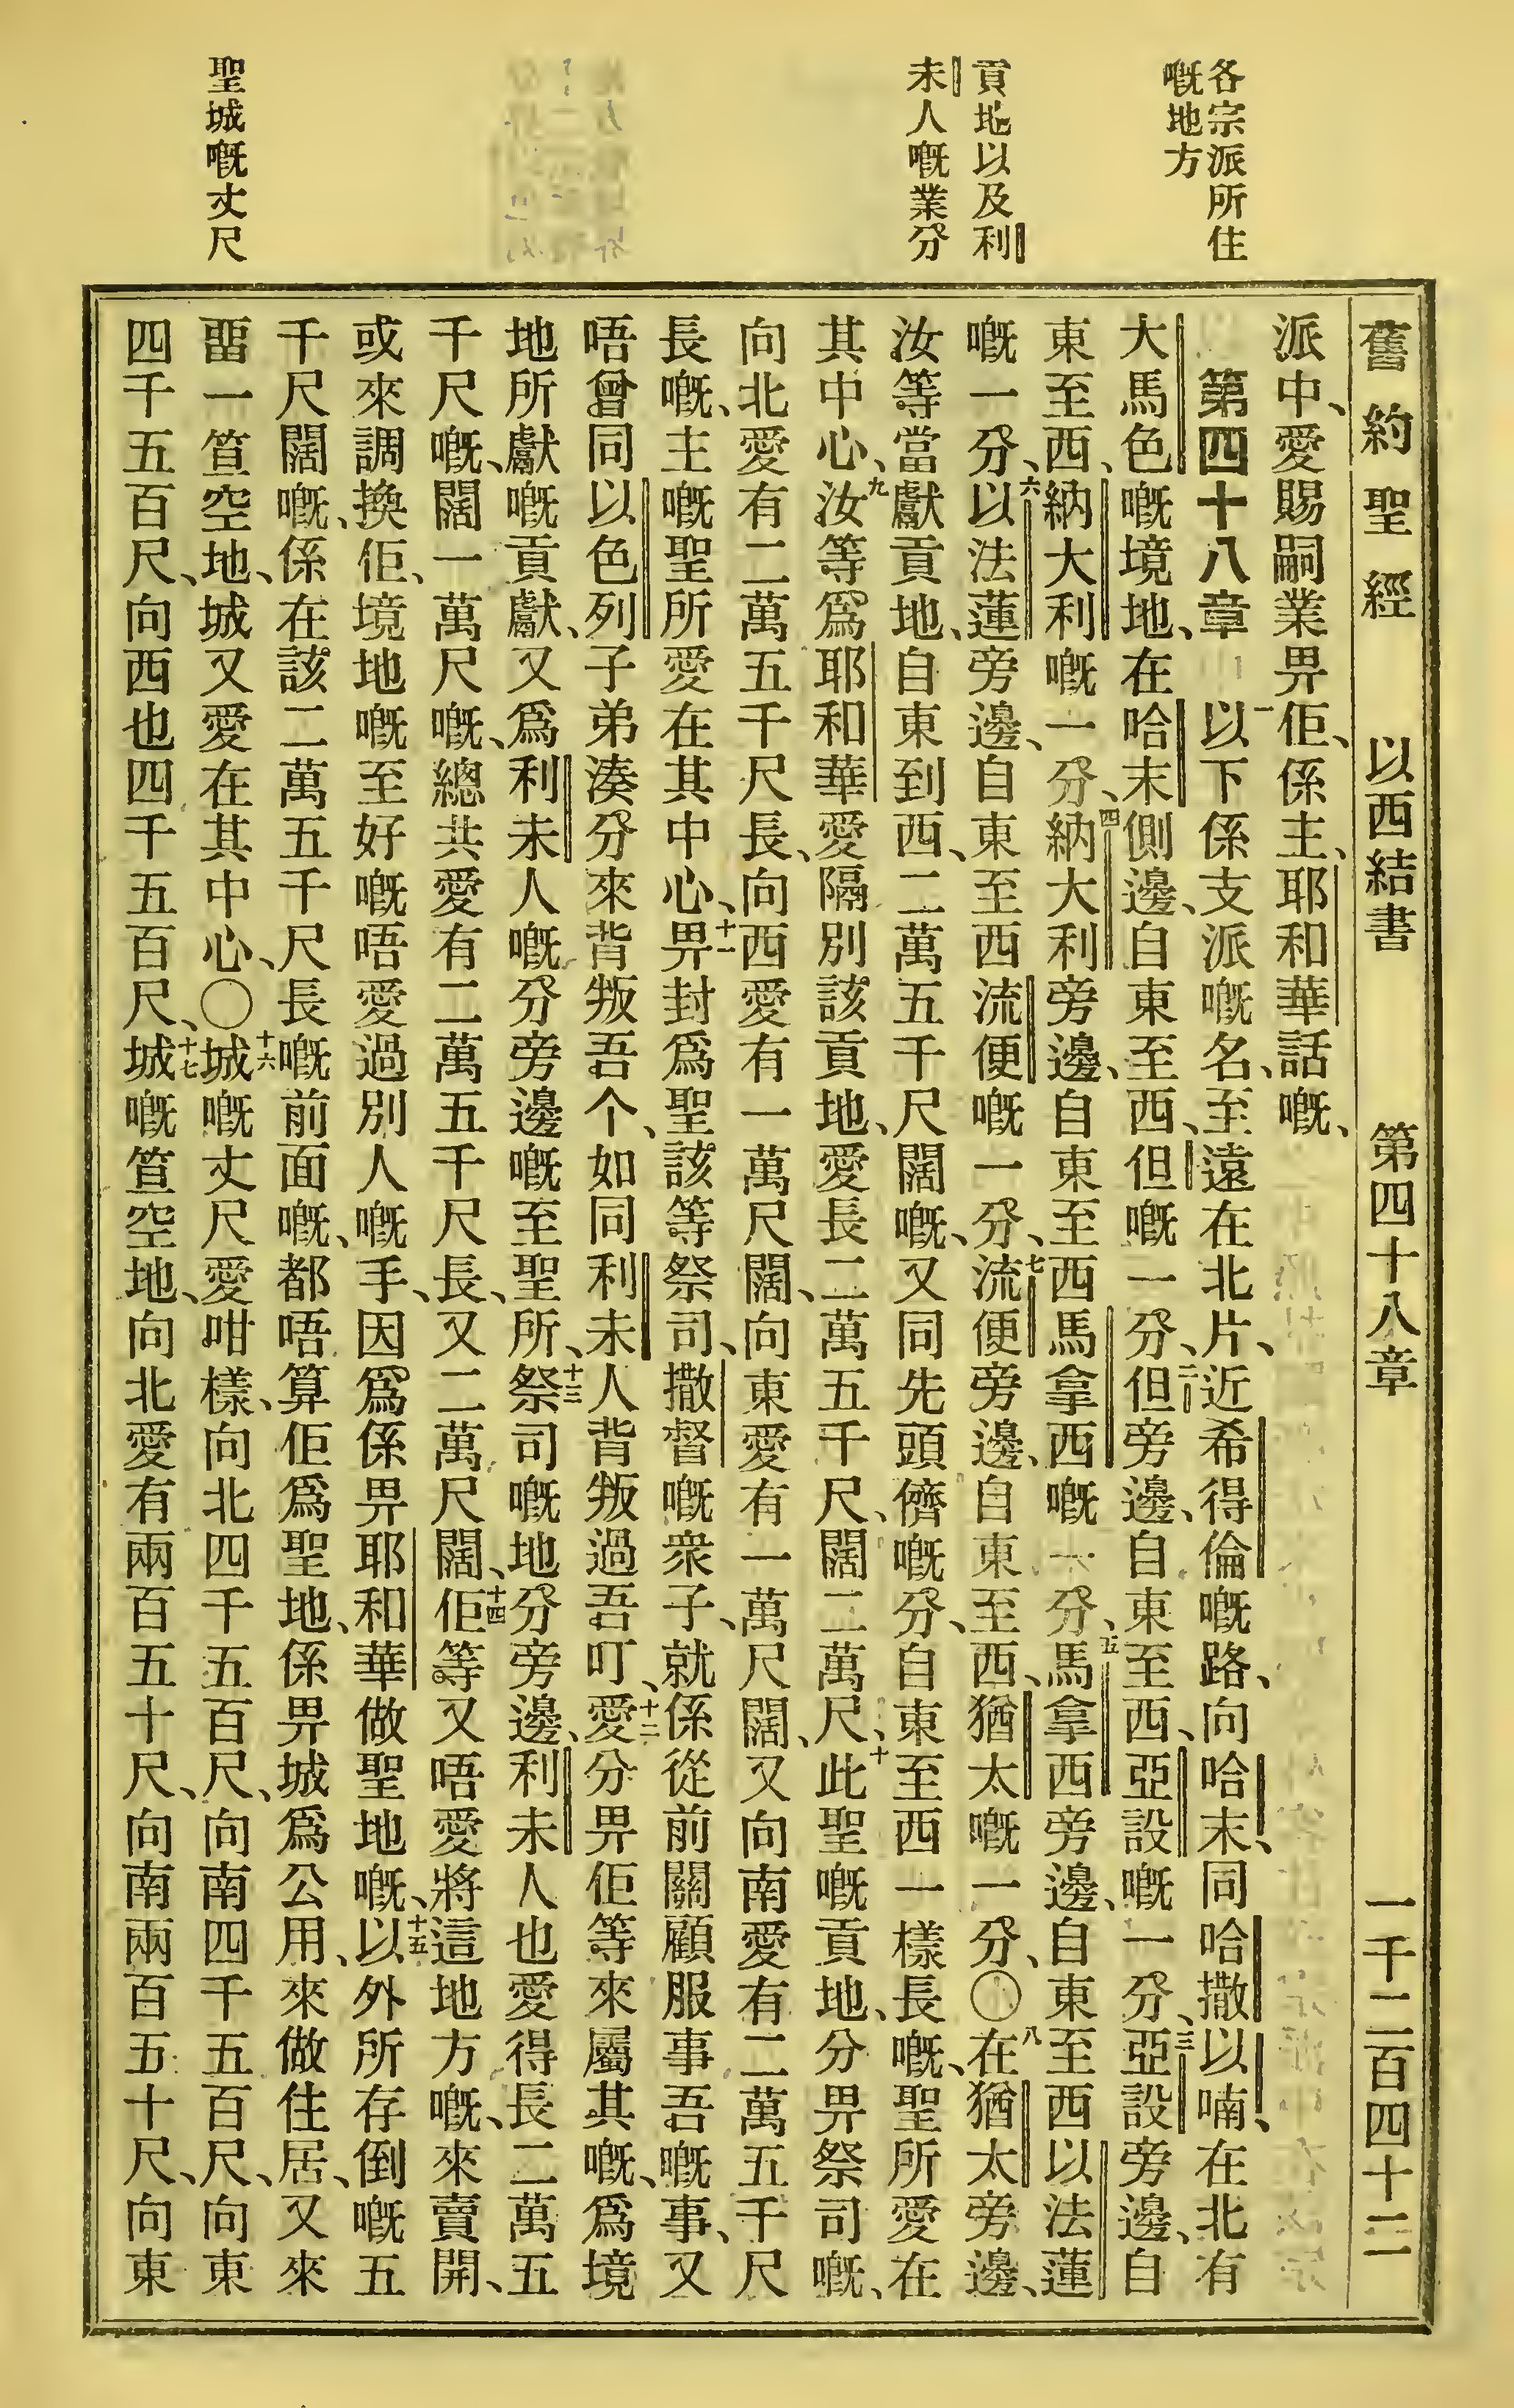 各宗派所住
嘅地方
貢地以及利
未人嘅業分
聖城嘅丈尺
舊約聖經 以西結書 第四十八章 一千二百四十二
派中、愛賜嗣業畀佢、係主、耶和華話嘅、
第四十八章 一以下係支派嘅名、至遠在北片、近希得倫嘅路、向哈末、同哈撒以喃、在北有
大馬色嘅境地、在哈末側邊、自東至西、但嘅一分、二但旁邊、自東至西、亞設嘅一分、三亞設旁邊、自
東至西、納大利嘅一分、四納大利旁邊、自東至西馬拿西嘅一分、五馬拿西旁邊、自東至西以法蓮
嘅一分、六以法蓮旁邊、自東至西流便嘅一分、七流便旁邊、自東至西、猶太嘅一分、〇八在猶太旁邊、
汝等當獻貢地、自東到西、二萬五千尺闊嘅、又同先頭儕嘅分、自東至西一樣長嘅、聖所愛在
其中心、九汝等爲耶和華愛隔別該貢地、愛長二萬五千尺、闊二萬尺、十此聖嘅貢地、分畀祭司嘅、
向北愛有二萬五千尺長、向西愛有一萬尺闊、向東愛有一萬尺闊、又向南愛有二萬五千尺
長嘅、主嘅聖所愛在其中心、十一畀封爲聖該等祭司、撒督嘅衆子、就係從前關顧服事吾嘅事、又
唔曾同以色列子弟湊分來背叛吾个、如同利未人背叛過吾叮、十二愛分畀佢等來屬其嘅、爲境
地所獻嘅貢獻、又爲利未人嘅分旁邊嘅至聖所、十三祭司嘅地分旁邊、利未人也愛得長二萬五
千尺嘅、闊一萬尺嘅、總共愛有二萬五千尺長、又二萬尺闊、十四佢等又唔愛將這地方嘅、來賣開、
或來調換佢、境地嘅至好嘅唔愛過別人嘅手、因爲係畀耶和華做聖地嘅、十五以外所存倒嘅五
千尺闊嘅、係在該二萬五千尺長嘅前面嘅、都唔算佢爲聖地、係畀城爲公用、來做住居、又來
畱一笪空地、城又愛在其中心、〇十六城嘅丈尺愛咁樣、向北四千五百尺、向南四千五百尺、向東
四千五百尺、向西也四千五百尺、十七城嘅笪空地、向北愛有兩百五十尺、向南兩百五十尺、向東